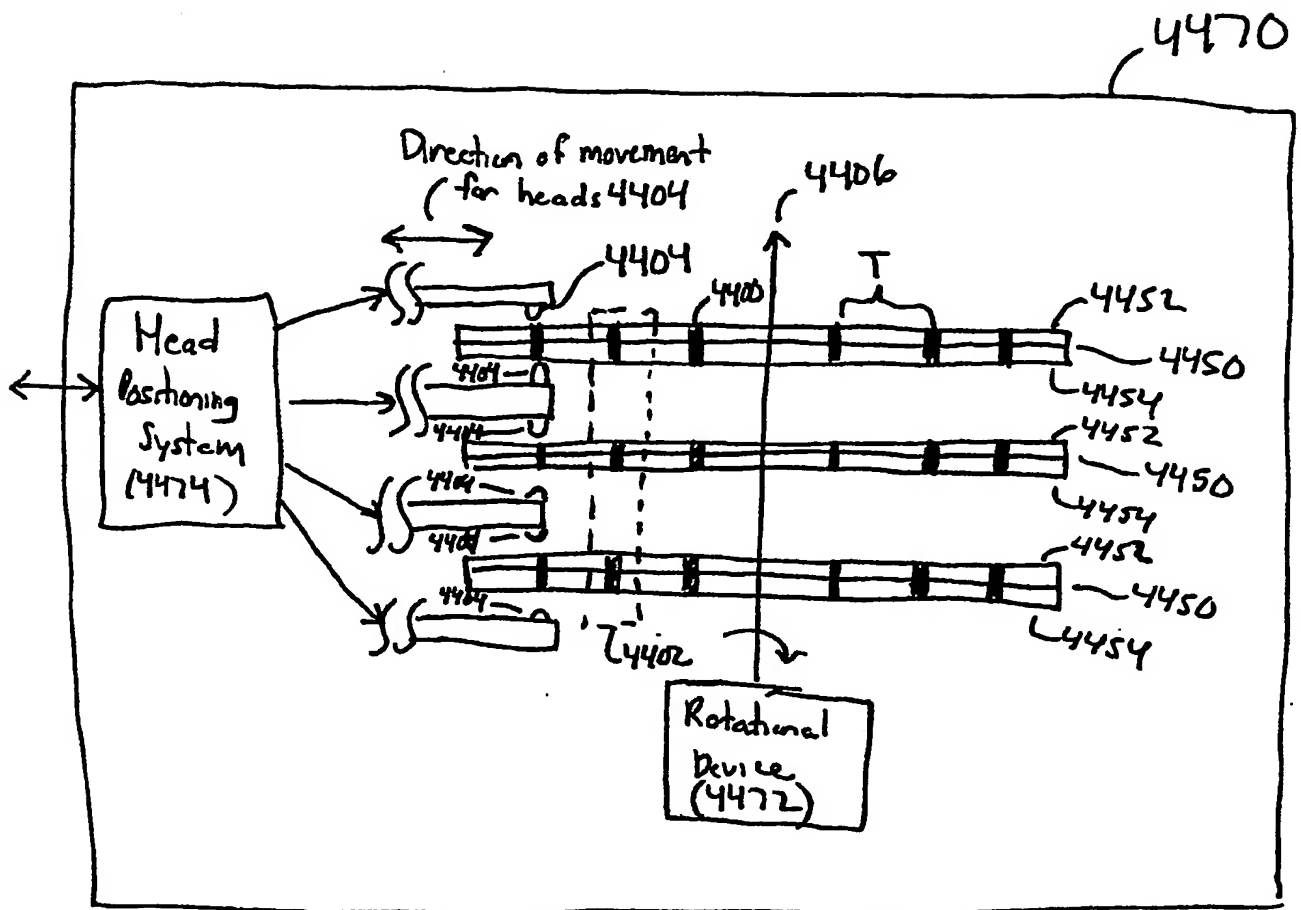 4470
Direction of movement
for heads 4404
4406
4404
4400
T
4452
4450
4454
4404
Head
Positioning
System
(4474)
4404
4452
4450
4454
4404
4404
4452
4450
4454
4404
4402
Rotational
Device
(4472)